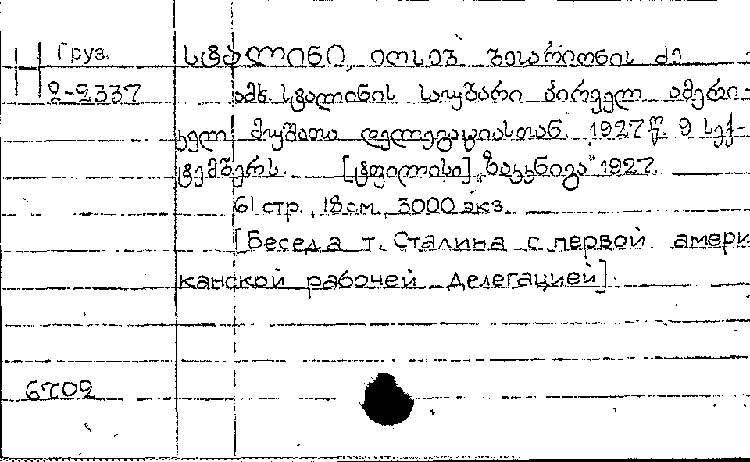 Груз. სტალინი, იოსებ ბესარიონის ძე
2-2337 ამხ. სტალინის საუბარი პირველ ამერი-
კელ მუშათა დელეგაციასთან. 1927 წ. 9 სექ-
ტემბერს. [ტფილისი] „ზაკკნიგა" 1927.
61 стр., 18 см., 3000 экз.
[Беседа т. Сталина с первой амери
канской рабочей делегацией].
6702